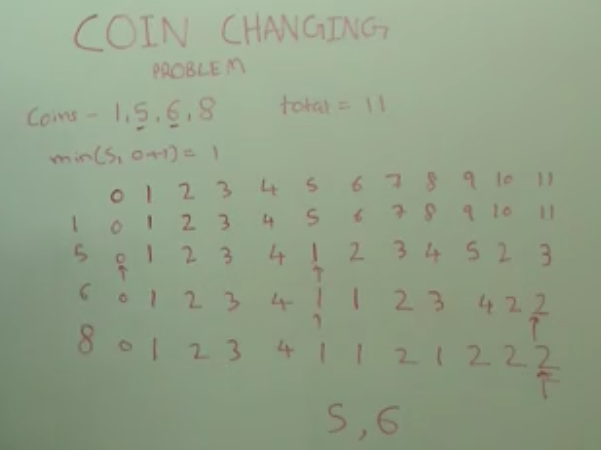 COIN CHANGING
PROBLEM
Coins - 1, 5, 6, 8 total = 11
min(5, 0+1) = 1
0 1 2 3 4 5 6 7 8 9 10 11
1 0 1 2 3 4 5 6 7 8 9 10 11
5 0 1 2 3 4 1 2 3 4 5 2 3
6 0 1 2 3 4 1 1 2 3 4 2 2
8 0 1 2 3 4 1 1 2 1 2 2 2
5, 6